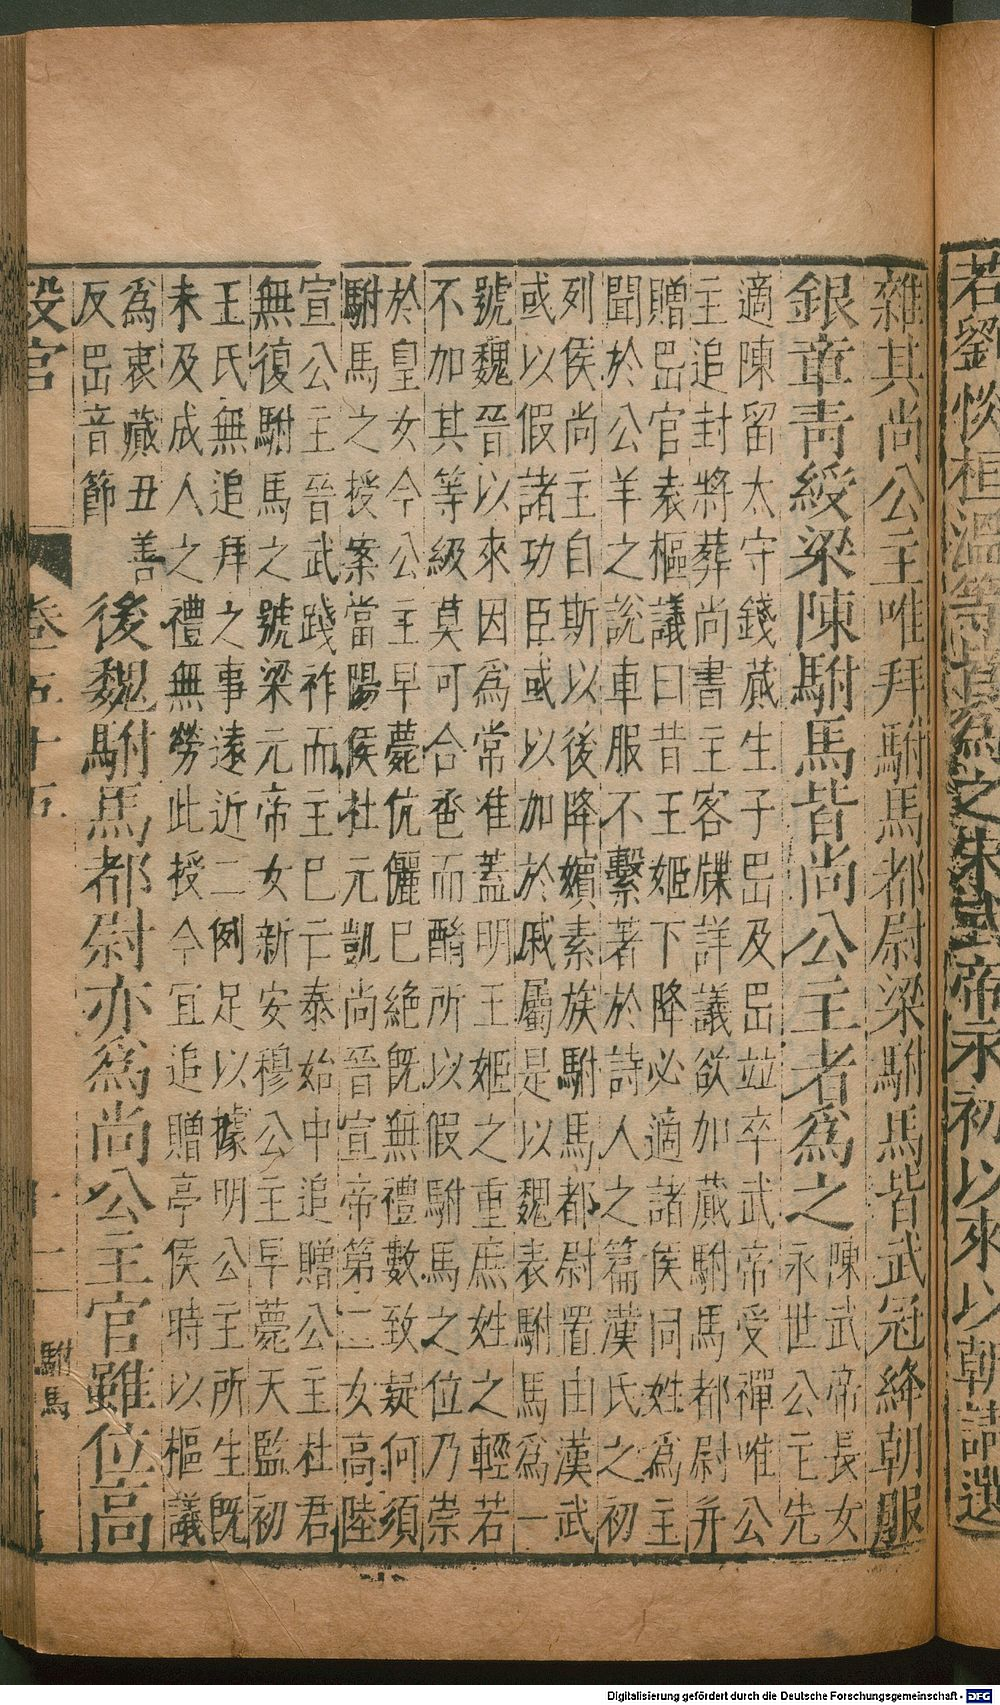 若劉惔桓溫等皆為之宋武帝永初以來以朝請選
雜其尚公主唯拜駙馬都尉梁駙馬皆武冠絳朝服
銀章青綬梁陳駙馬皆尚公主者為之
陳武帝長女
永世公主先
適陳留太守錢蕆生子岊及岊竝卒武帝受禪唯公
主追封將葬尚書主客牒詳議欲加蕆駙馬都尉并
贈岊官袁樞議曰昔王姬下降必適諸侯同姓為主
聞於公羊之說車服不繫著於詩人之篇漢氏之初
列侯尚主自斯以後降嬪素族駙馬都尉置由漢武
或以假諸功臣或以加於戚屬是以魏表駙馬為一
號魏晉以來因為常隼蓋明王姬之重庶姓之輕若
不加其等級莫可合巹而酳所以假駙馬之位乃崇
於皇女今公主早薨伉儷已絕既無禮數致疑何須
駙馬之授案當陽侯杜元凱尚晉宣帝第二女高陸
宣公主晉武踐祚而主已亡泰始中追贈公主杜君
無復駙馬之號梁元帝女新安穆公主早薨天監初
王氏無追拜之事遠近二例足以據明公主所生既
未及成人之禮無勞此授今宜追贈亭侯時以樞議
為衷蕆丑善
反岊音節
後魏駙馬都尉亦為尚公主官雖位高
設官 卷五十五 十一 駙馬
Digitalisierung gefördert durch die Deutsche Forschungsgemeinschaft - DFG